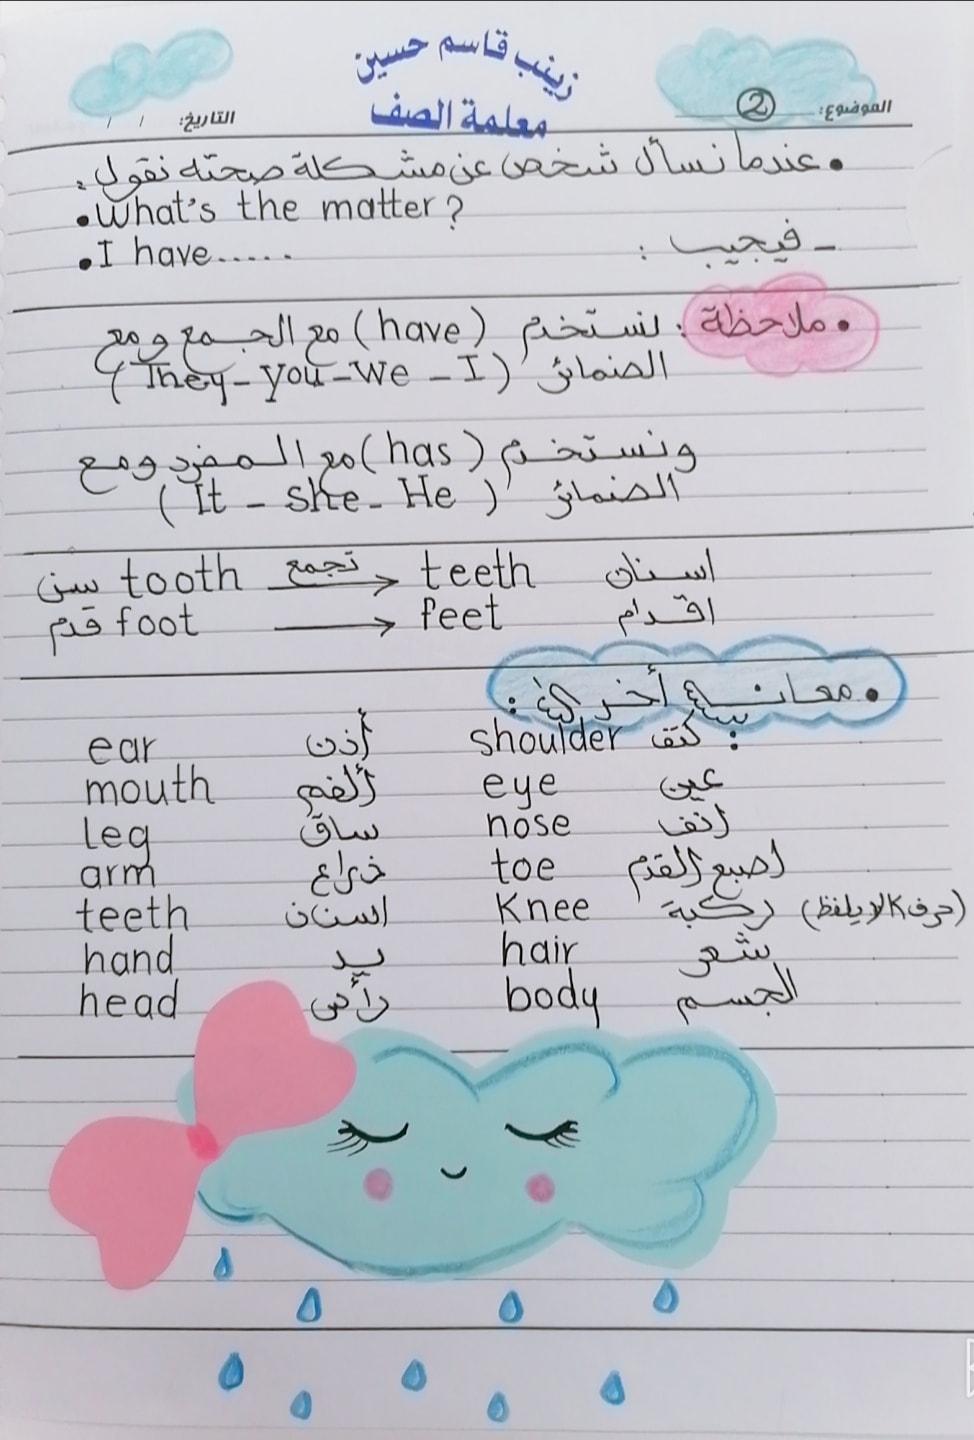 زينب قاسم حسين
معلمة الصف
الموضوع: 2 التاريخ: / /
• عندما نسأل شخص عن مشكلة صحته نقول:
• What's the matter?
- فيجيب :
• I have.....
• ملاحظة : نستخدم (have) مع الجمع ومع
الضمائر (They - you - we - I)
ونستخدم (has) مع المفرد ومع
الضمائر (It - she - He)
سن tooth تجمع → teeth اسنان
قدم foot → feet اقدام
ear أذن shoulder كتف :
mouth ألفم eye عين
leg ساق nose انف
arm ذراع toe اصبع القدم
teeth اسنان Knee ركبة (حرف K لا يلفظ)
hand يد hair شعر
head رأس body الجسم